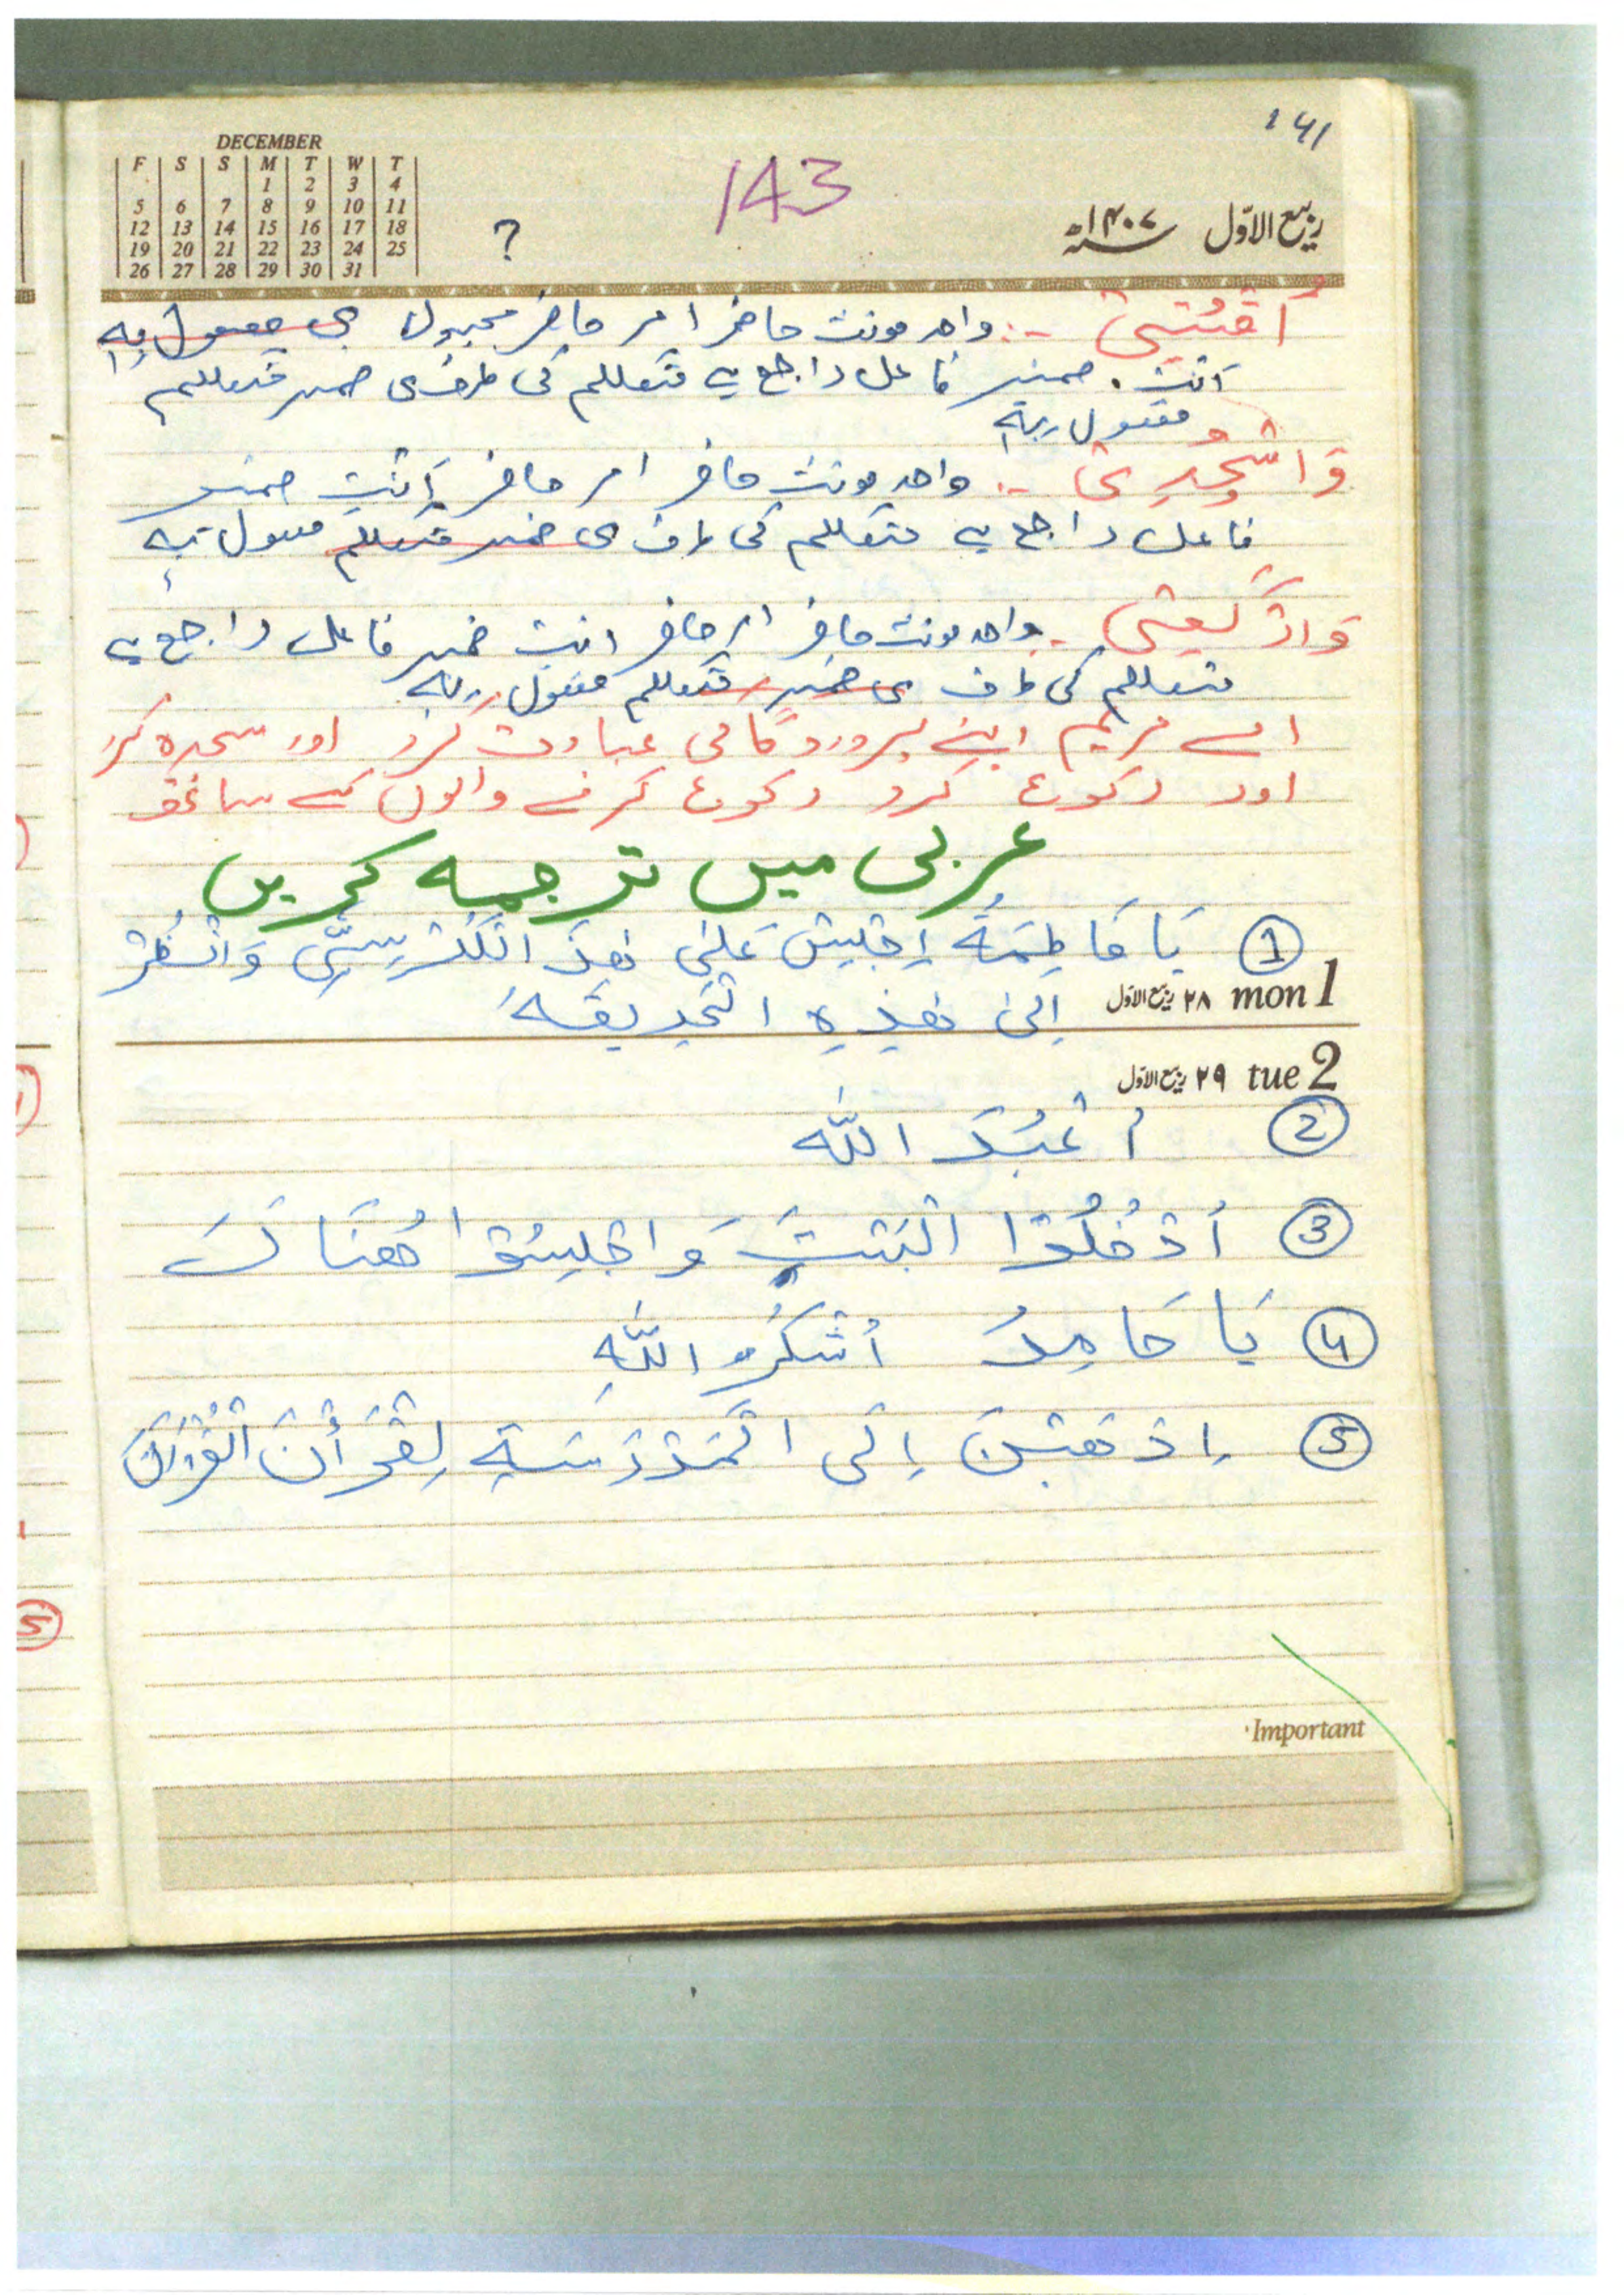 141
DECEMBER
F S S M T W T
1 2 3 4
5 6 7 8 9 10 11
12 13 14 15 16 17 18
19 20 21 22 23 24 25
26 27 28 29 30 31
?
143
ربیع الاوّل ۱۴۰۷ھ
اُقْنُتِیْ :- واحد مونث حاضر امر حاضر مجہول ی مفعول بہ
اَنْتِ ضمیر فاعل راجع ہے متکلم کی طرف ی ضمیر متکلم
مفعول بہ
وَاسْجُدِیْ :- واحد مونث حاضر امر حاضر اَنْتِ ضمیر
فاعل راجع ہے متکلم کی طرف ی ضمیر متکلم مفعول بہ
وَارْکَعِیْ - واحد مونث حاضر امر حاضر انت ضمیر فاعل راجع ہے
متکلم کی طرف ی ضمیر متکلم مفعول بہ
اے مریم اپنے پروردگا کی عبادت کرو اور سجدہ کرو
اور رکوع کرو رکوع کرنے والوں کے ساتھ
عربی میں ترجمہ کریں
① یَا فَاطِمَۃُ اِجْلِیْسْ عَلیٰ ھٰذَ الْکُرْسِیِّ وَانْظُرْ
اِلیٰ ھٰذِہِ الْحَدِیْقَہَ
mon 1 ۲۸ ربیع الاوّل
tue 2 ۲۹ ربیع الاوّل
② اُعْبُدَ اللّٰہ
③ اُدْخُلُوْا الْبَیْتَ وَاجْلِسُوْا ھُنَاکَ
④ یَا حَامِدُ اُشْکُرُ اللّٰہِ
⑤ اِذْھَبْنَ اِلَی الْمَدْرَسَۃِ لِتَقْرَأْنَ الْقُرْاٰنَ
Important